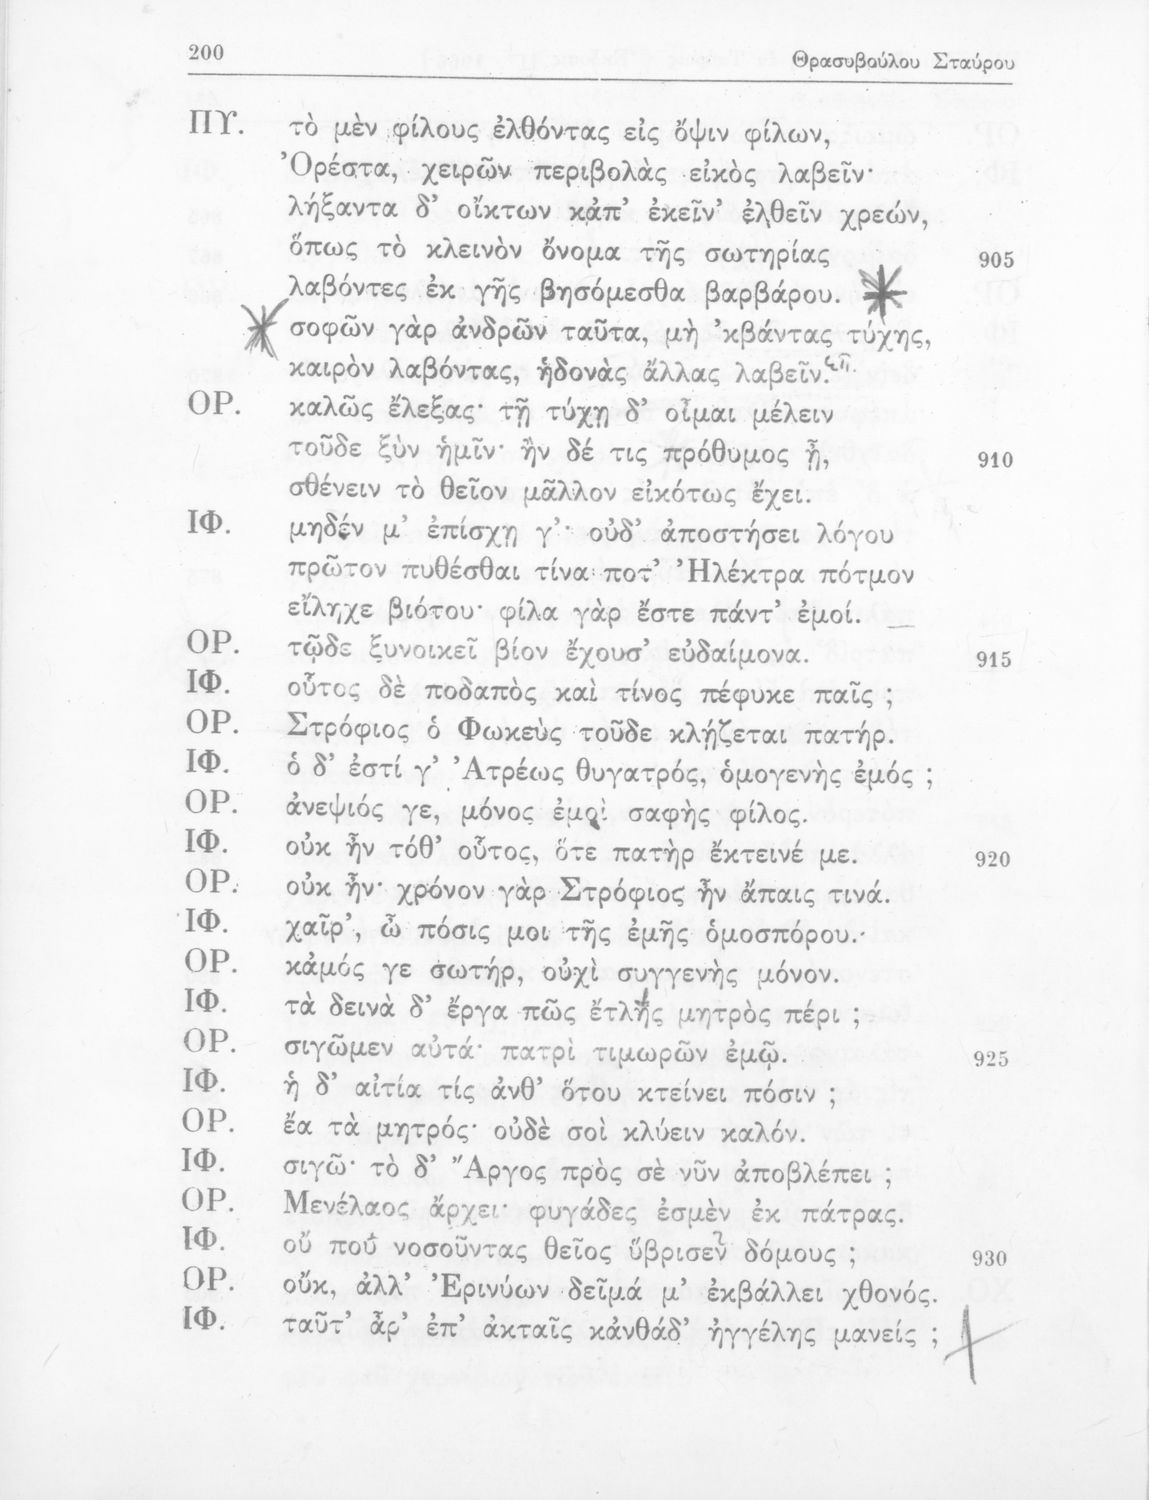 200 Θρασυβούλου Σταύρου
ΠΥ. τὸ μὲν φίλους ἐλθόντας εἰς ὄψιν φίλων,
Ὀρέστα, χειρῶν περιβολὰς εἰκὸς λαβεῖν·
λήξαντα δ’ οἴκτων κἀπ’ ἐκεῖν’ ἐλθεῖν χρεών,
ὅπως τὸ κλεινὸν ὄνομα τῆς σωτηρίας 905
λαβόντες ἐκ γῆς βησόμεσθα βαρβάρου.
σοφῶν γὰρ ἀνδρῶν ταῦτα, μὴ ’κβάντας τύχης,
καιρὸν λαβόντας, ἡδονὰς ἄλλας λαβεῖν.
ΟΡ. καλῶς ἔλεξας· τῇ τύχῃ δ’ οἶμαι μέλειν
τοῦδε ξὺν ἡμῖν· ἢν δέ τις πρόθυμος ᾖ, 910
σθένειν τὸ θεῖον μᾶλλον εἰκότως ἔχει.
ΙΦ. μηδέν μ’ ἐπίσχῃ γ’· οὐδ’ ἀποστήσει λόγου
πρῶτον πυθέσθαι τίνα ποτ’ Ἠλέκτρα πότμον
εἴληχε βιότου· φίλα γὰρ ἔστε πάντ’ ἐμοί.
ΟΡ. τῷδε ξυνοικεῖ βίον ἔχουσ’ εὐδαίμονα. 915
ΙΦ. οὗτος δὲ ποδαπὸς καὶ τίνος πέφυκε παῖς ;
ΟΡ. Στρόφιος ὁ Φωκεὺς τοῦδε κλῄζεται πατήρ.
ΙΦ. ὁ δ’ ἐστί γ’ Ἀτρέως θυγατρός, ὁμογενὴς ἐμός ;
ΟΡ. ἀνεψιός γε, μόνος ἐμοὶ σαφὴς φίλος.
ΙΦ. οὐκ ἦν τόθ’ οὗτος, ὅτε πατὴρ ἔκτεινέ με. 920
ΟΡ. οὐκ ἦν· χρόνον γὰρ Στρόφιος ἦν ἄπαις τινά.
ΙΦ. χαῖρ’, ὦ πόσις μοι τῆς ἐμῆς ὁμοσπόρου.
ΟΡ. κἀμός γε σωτήρ, οὐχὶ συγγενὴς μόνον.
ΙΦ. τὰ δεινὰ δ’ ἔργα πῶς ἔτλης μητρὸς πέρι ;
ΟΡ. σιγῶμεν αὐτά· πατρὶ τιμωρῶν ἐμῷ. 925
ΙΦ. ἡ δ’ αἰτία τίς ἀνθ’ ὅτου κτείνει πόσιν ;
ΟΡ. ἔα τὰ μητρός· οὐδὲ σοὶ κλύειν καλόν.
ΙΦ. σιγῶ· τὸ δ’ Ἄργος πρὸς σὲ νῦν ἀποβλέπει ;
ΟΡ. Μενέλαος ἄρχει· φυγάδες ἐσμὲν ἐκ πάτρας.
ΙΦ. οὔ που νοσοῦντας θεῖος ὕβρισεν δόμους ; 930
ΟΡ. οὔκ, ἀλλ’ Ἐρινύων δεῖμά μ’ ἐκβάλλει χθονός.
ΙΦ. ταῦτ’ ἆρ’ ἐπ’ ἀκταῖς κἀνθάδ’ ἠγγέλης μανείς ;